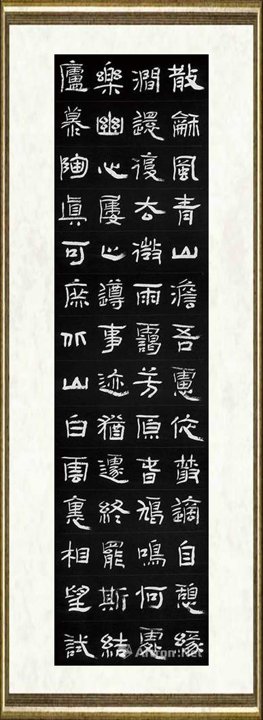 散龢風青山澹吾慮依叢適自憩緣
澗還復去微雨靄芳原春鳩鳴何處
樂幽心屢止遵事迹猶遽終罷斯結
廬慕陶眞可庶北山白雲裏相望試
Artron.Net